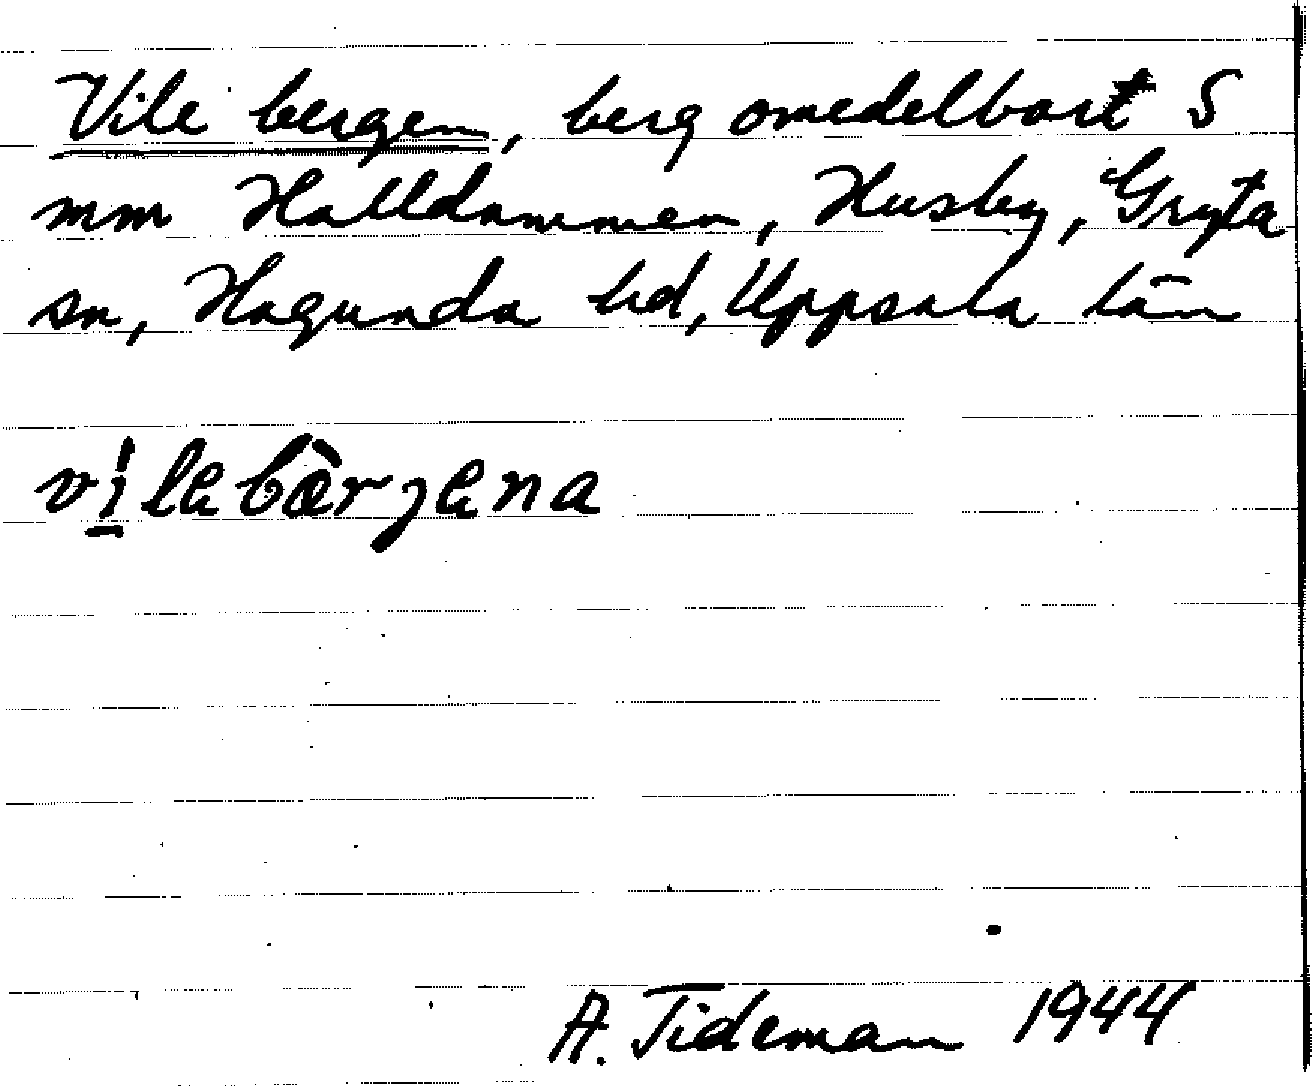 Vile bergen, berg omedelbart S
om Halldammen, Husby, Gryta
sn, Hagunda hd, Uppsala län
vìlebæ̀rjena
A. Tideman 1944